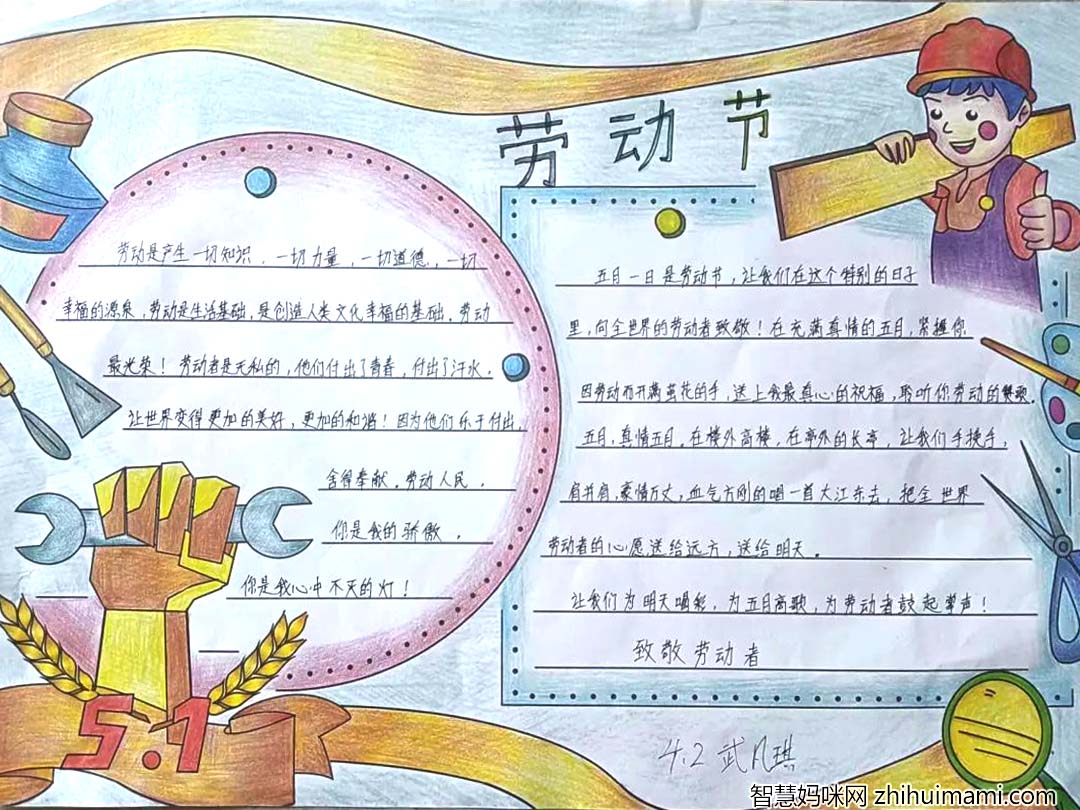 劳动节
劳动是产生一切知识、一切力量，一切道德，一切
幸福的源泉，劳动是生活基础，是创造人类文化幸福的基础。劳动
最光荣！劳动者是无私的，他们付出了青春，付出了汗水。
让世界变得更加的美好，更加的和谐！因为他们乐于付出，
舍得奉献。劳动人民，
你是我的骄傲，
你是我心中不灭的灯！
五月一日是劳动节，让我们在这个特别的日子
里，向全世界的劳动者致敬！在充满真情的五月，紧握你
因劳动而开满茧花的手，送上我最真心的祝福，聆听你劳动的赞歌。
五月，真情五月。在楼外高楼，在亭外的长亭，让我们手挽手，
肩并肩，豪情万丈，血气方刚的唱一首大江东去，把全世界
劳动者的心愿送给远方，送给明天。
让我们为明天喝彩，为五月高歌，为劳动者鼓起掌声！
致敬劳动者
5.1
4.2 武凡琪
智慧妈咪网 zhihuimami.com